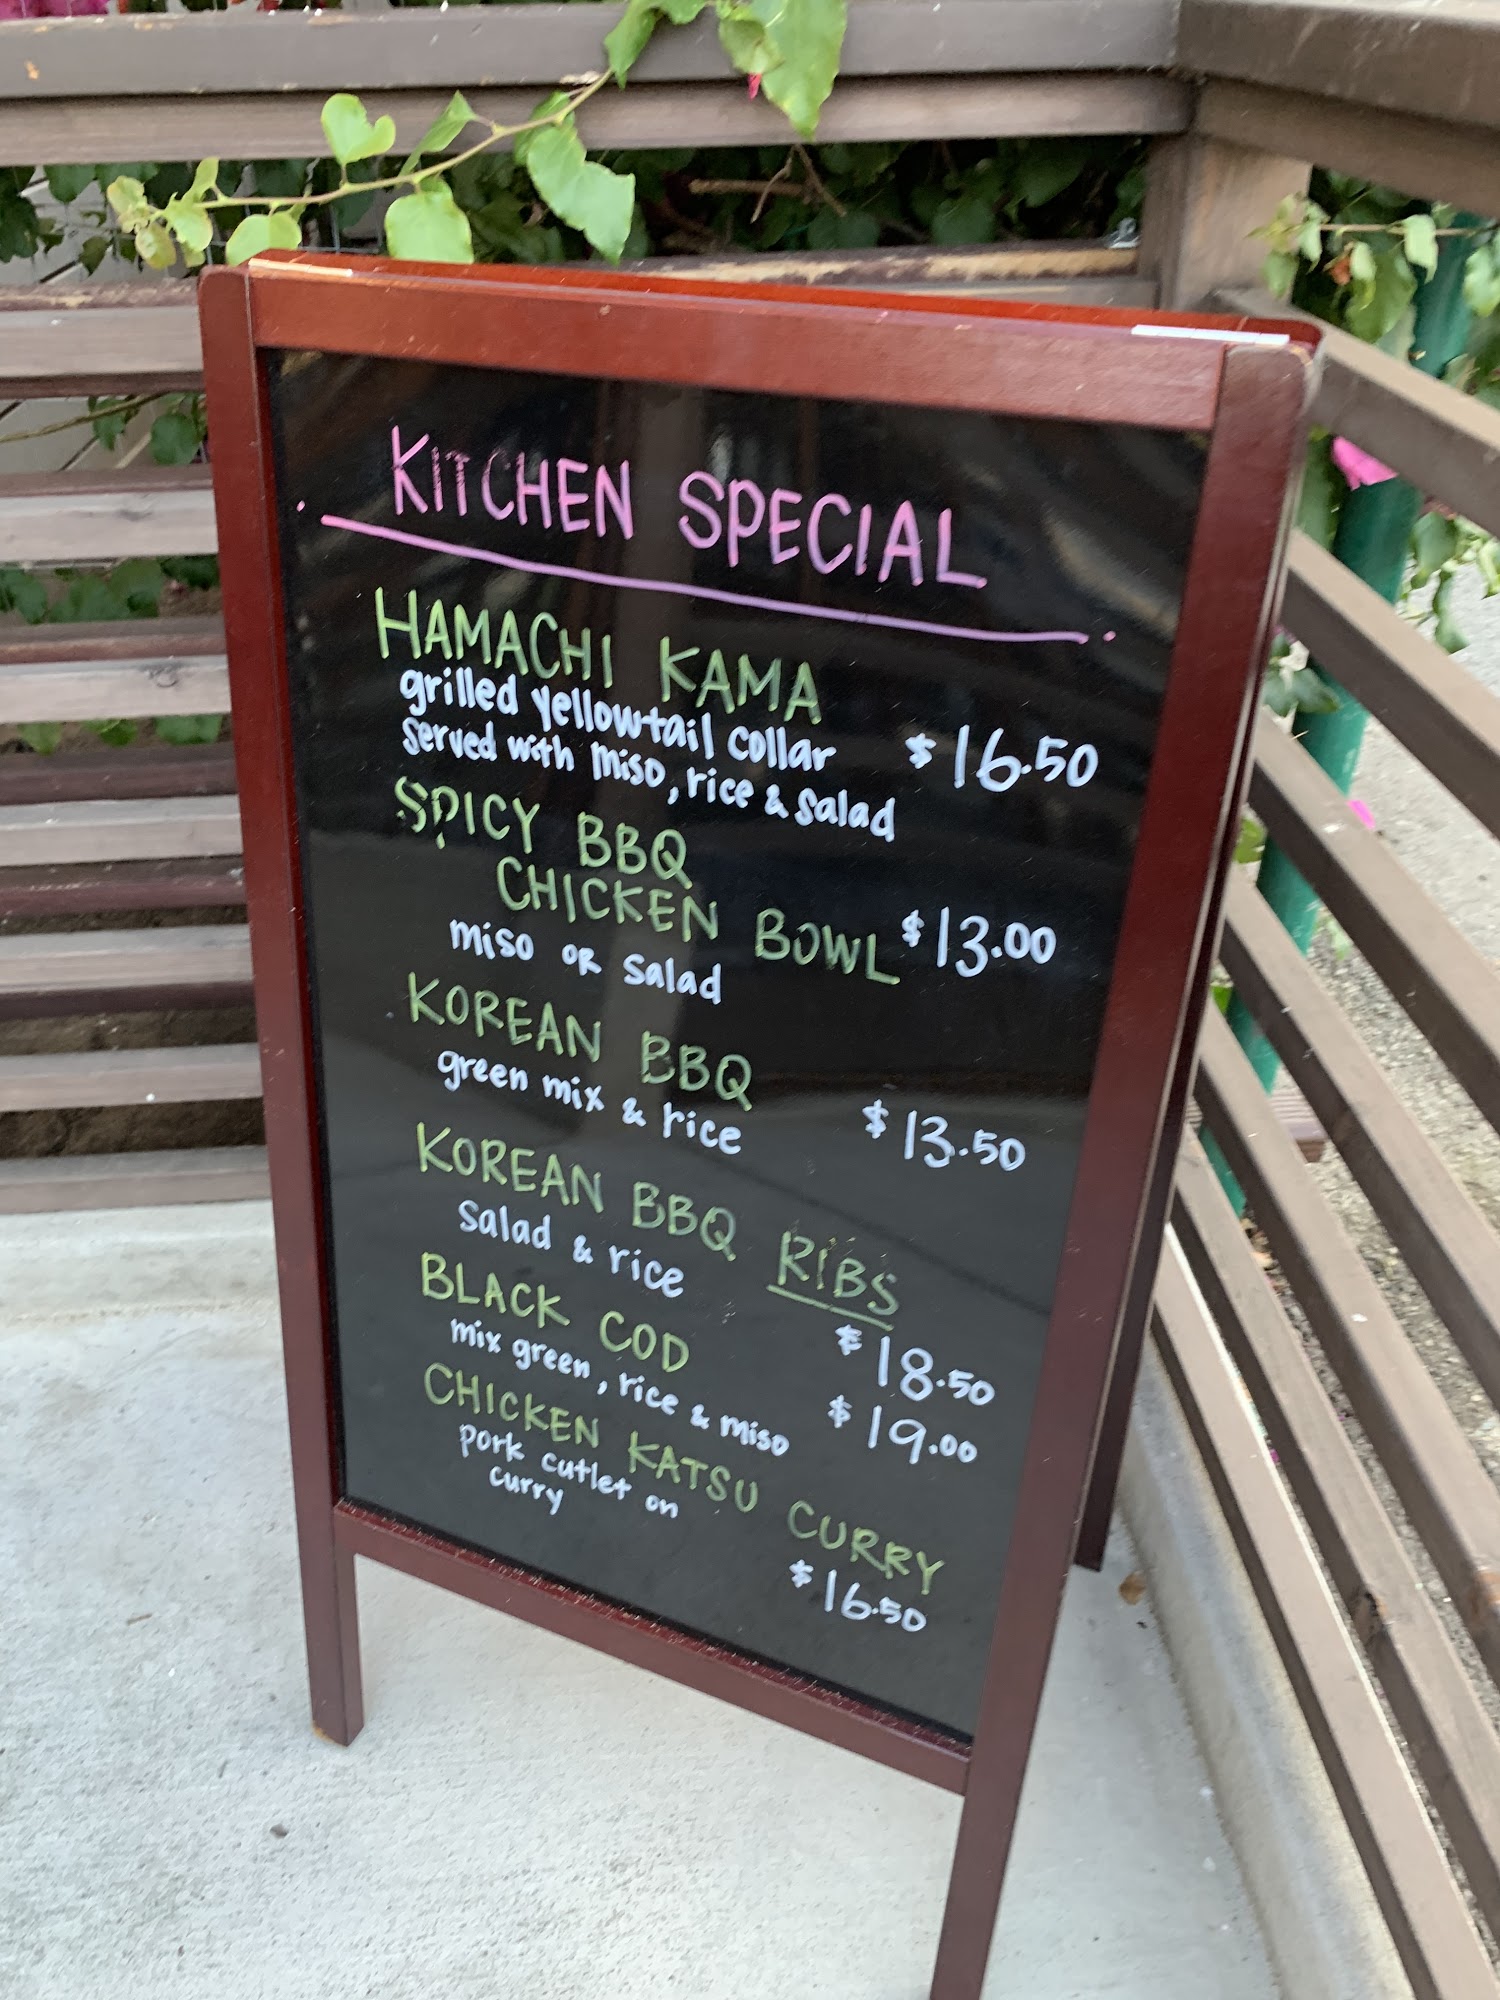 KITCHEN SPECIAL
HAMACHI KAMA
grilled yellowtail collar
served with miso, rice & salad
$16.50
SPICY BBQ
CHICKEN BOWL $13.00
miso or salad
KOREAN BBQ
green mix & rice
$13.50
KOREAN BBQ RIBS
salad & rice
$18.50
BLACK COD
mix green, rice & miso
$19.00
CHICKEN KATSU CURRY
pork cutlet on
curry
$16.50